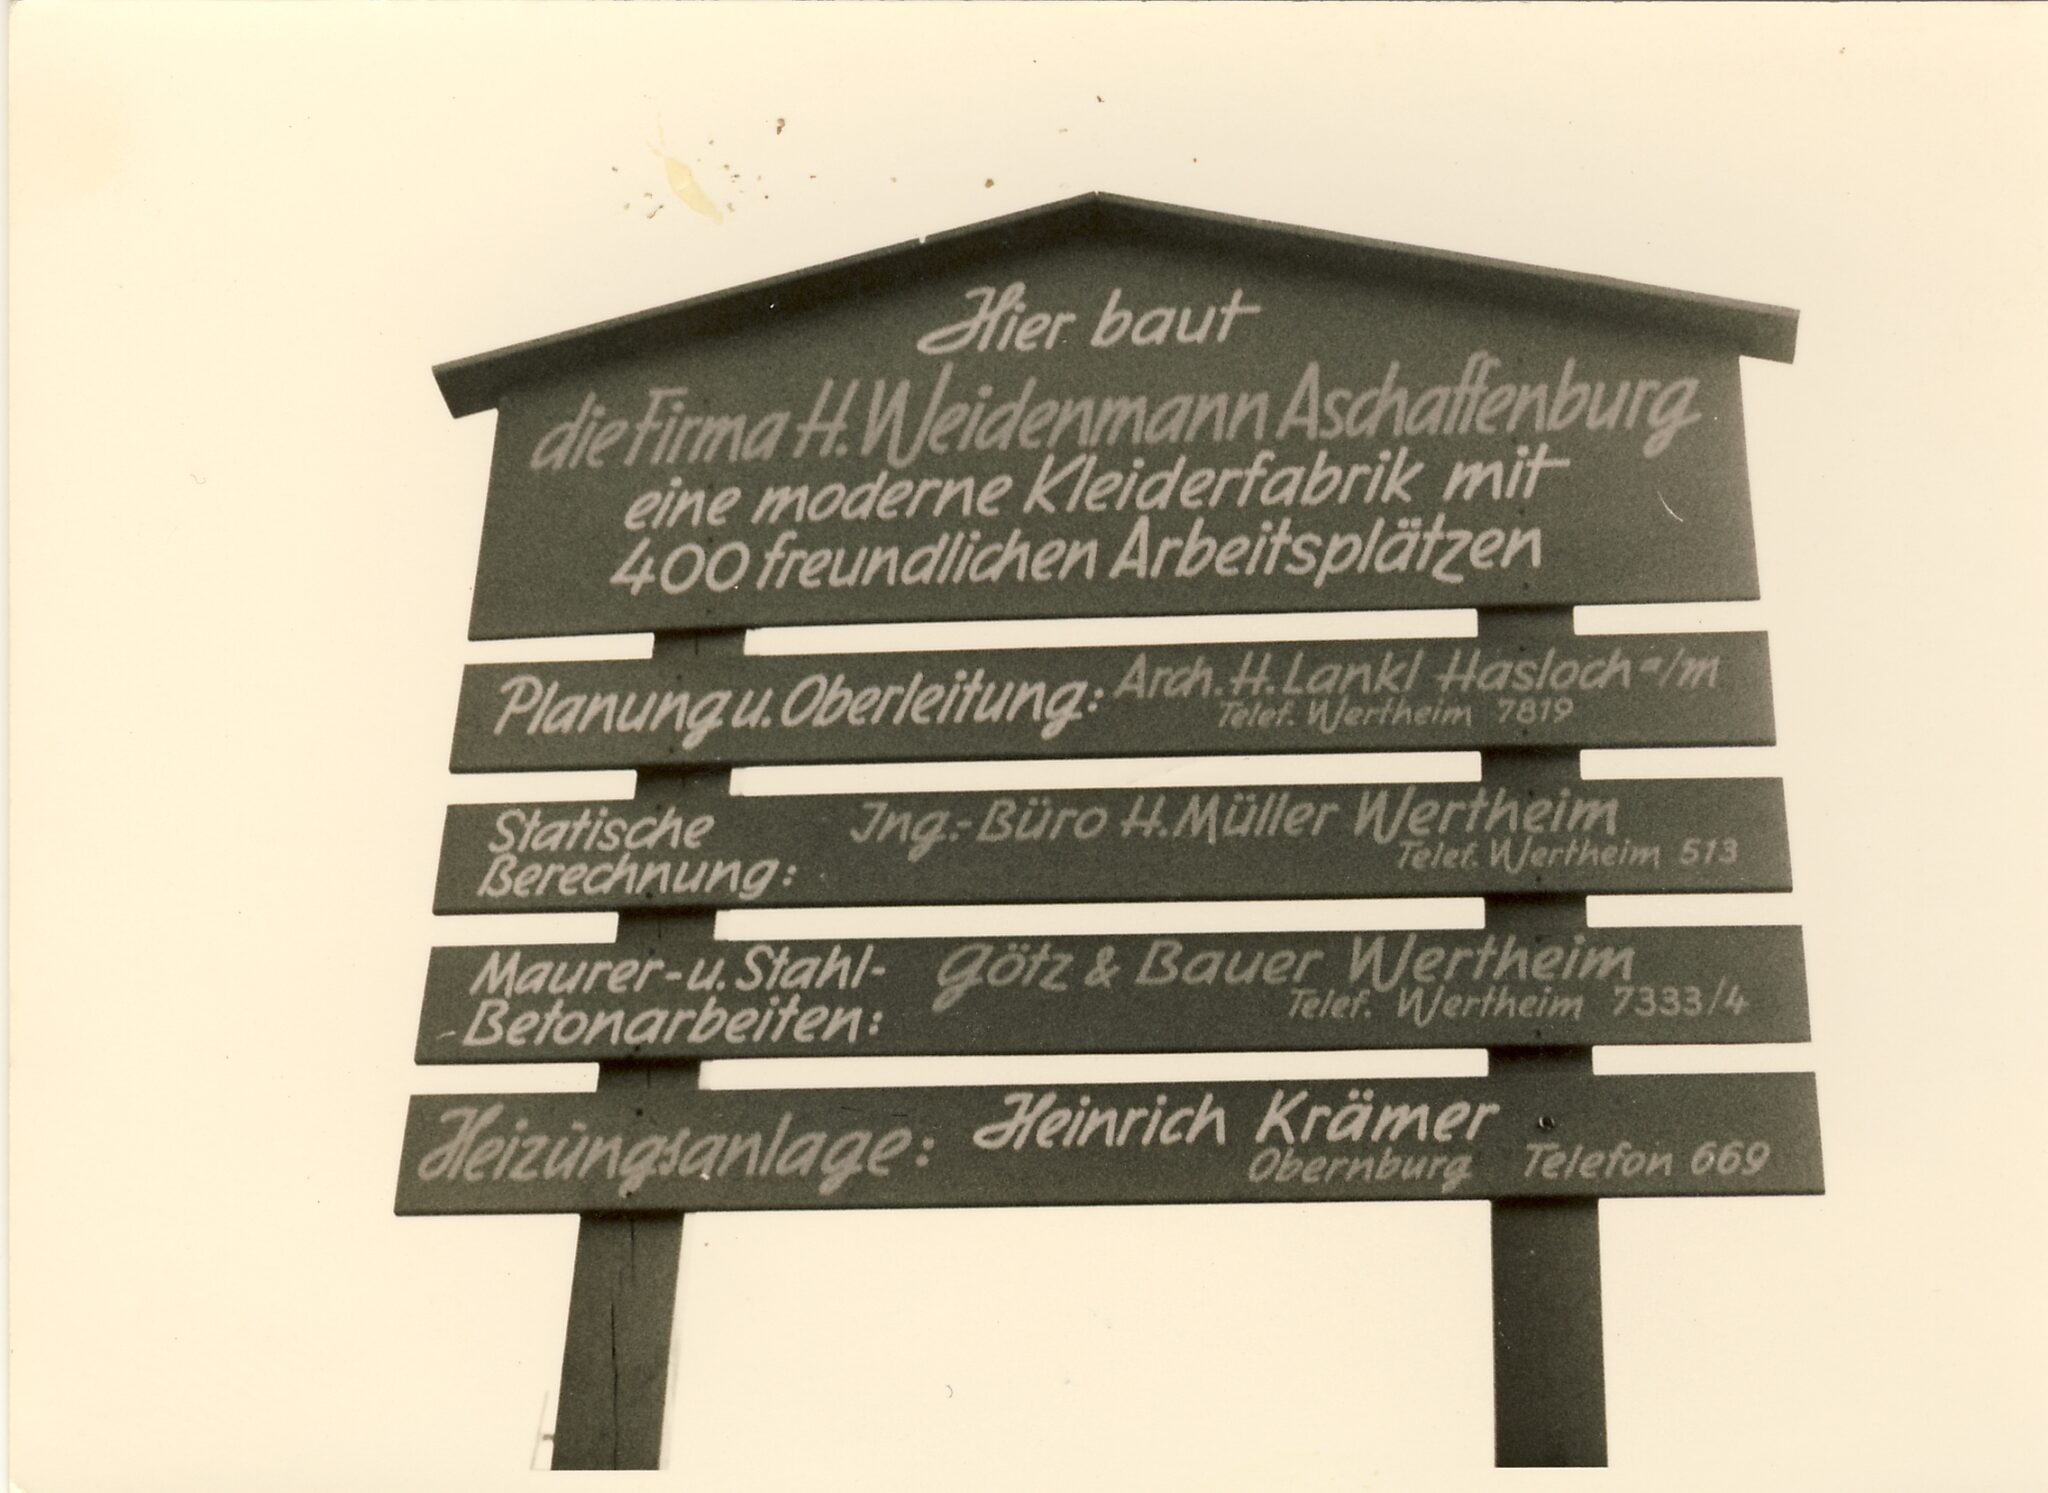 Hier baut
die Firma H. Weidenmann Aschaffenburg
eine moderne Kleiderfabrik mit
400 freundlichen Arbeitsplätzen
Planung u. Oberleitung: Arch. H. Lankl Hasloch a/m
Telef. Wertheim 7819
Statische
Berechnung:
Ing.-Büro H. Müller Wertheim
Telef. Wertheim 513
Maurer- u. Stahl-
Betonarbeiten:
Götz & Bauer Wertheim
Telef. Wertheim 7333/4
Heizüngsanlage: Heinrich Krämer
Obernburg Telefon 669